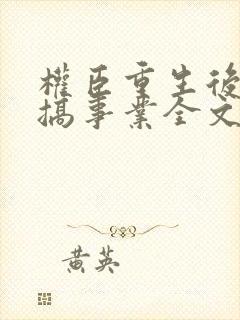 權臣重生後
搞事業全文
黃英